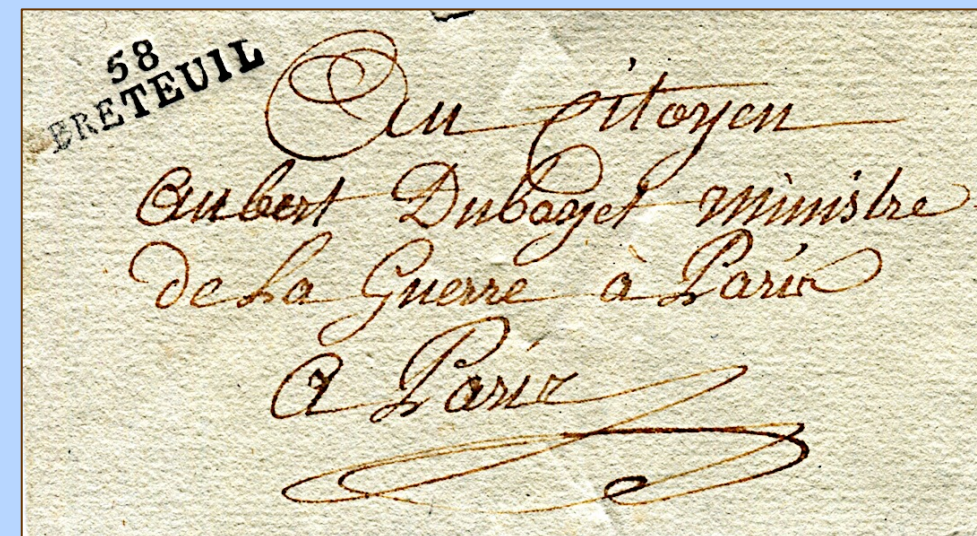 58
BRETEUIL
Au Citoyen
Aubert Dubayet ministre
de La Guerre à Paris
A Paris